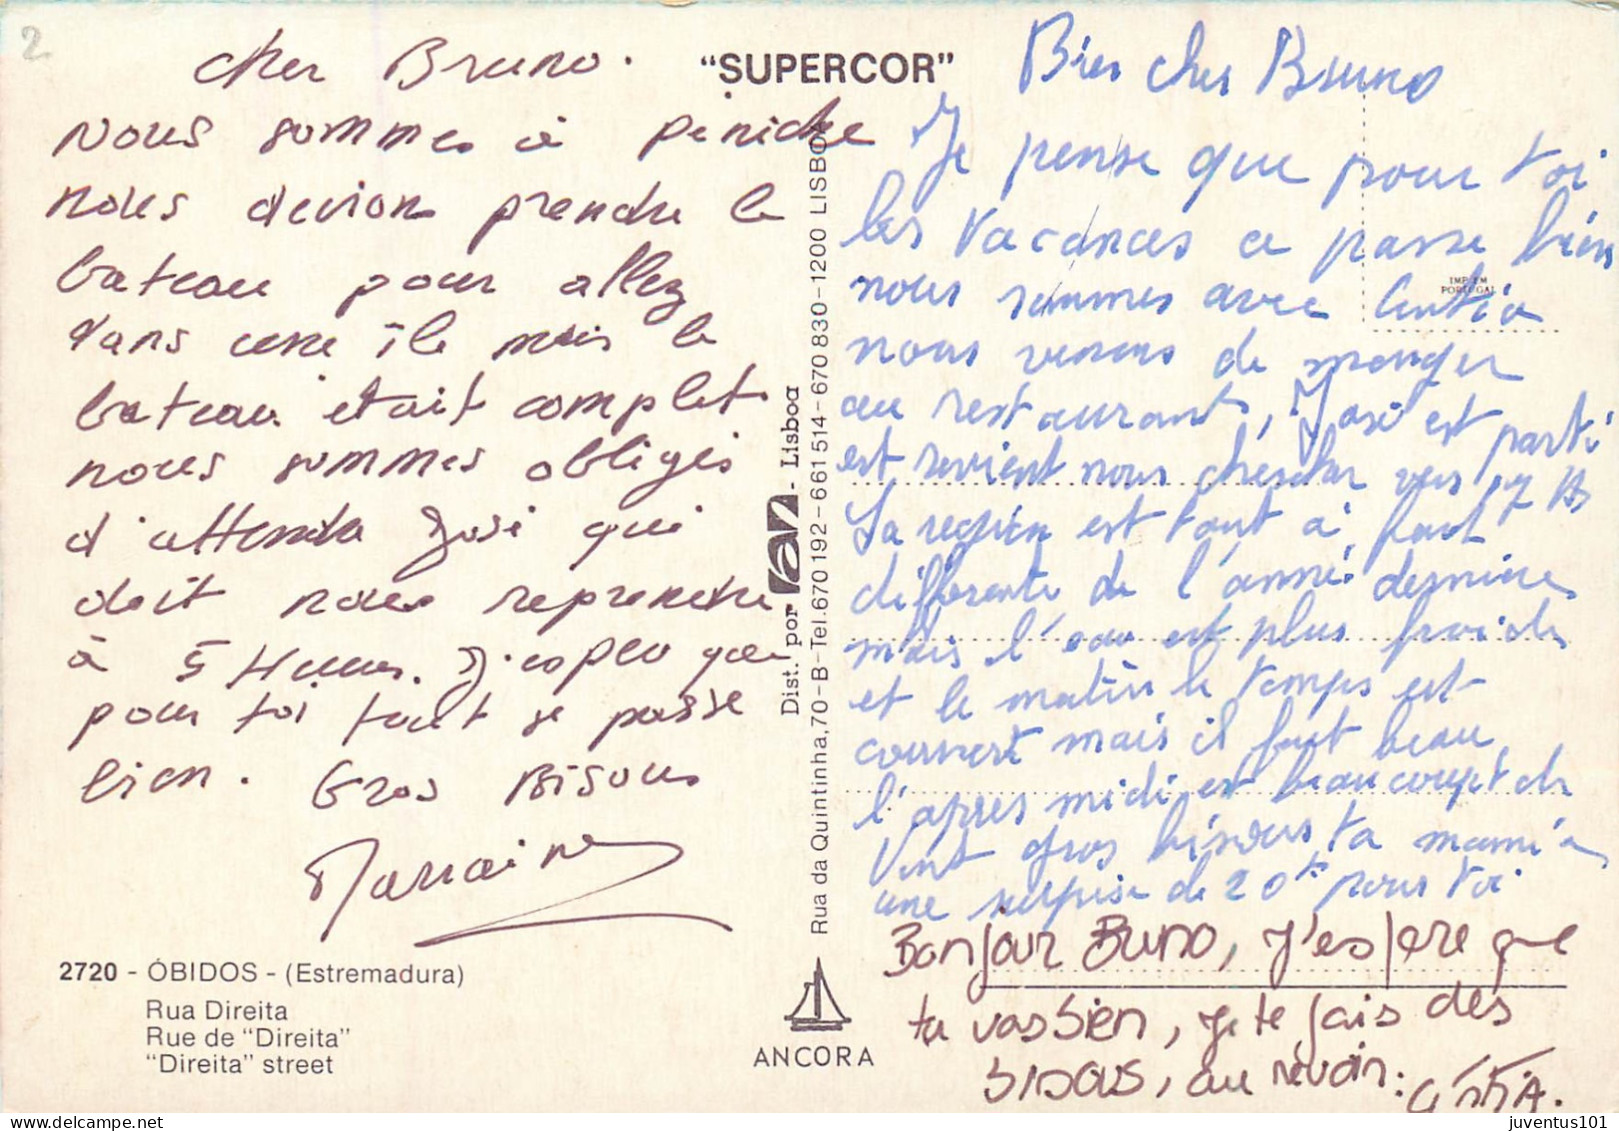 2
cher Bruno.
nous sommes à peniche
nous devions prendre le
bateau pour allez
dans une île mais le
bateau était complet
nous sommes obligés
d'attendre José qui
doit nous reprendre
à 5 Heures. J'espère que
pour toi tout se passe
bien. Gros Bisous
Marraine
2720 - ÓBIDOS - (Estremadura)
Rua Direita
Rue de "Direita"
"Direita" street
"SUPERCOR"
Dist. por - Lisboa
Rua da Quintinha, 70-B-Tel. 670 192-661 514-670 830-1200 LISBOA
ANCORA
IMP. EM
PORTUGAL
Bien cher Bruno
Je pense que pour toi
les vacances ce passe bien
nous sommes avec
nous venons de manger
au restaurant, José est parti
est revient nous chercher vers 17 H
La région est tout à fait
différente de l'année dernière
mais l'eau est plus froide
et le matin le temps est
couvert mais il fait beau
l'après midi est beaucoupt de
Vent gros bisous ta mamie
une surprise de 20 pour toi
Bonjour Buno, j'espère que
tu vas bien, je te fais des
bisous, au revoir.
juventus101